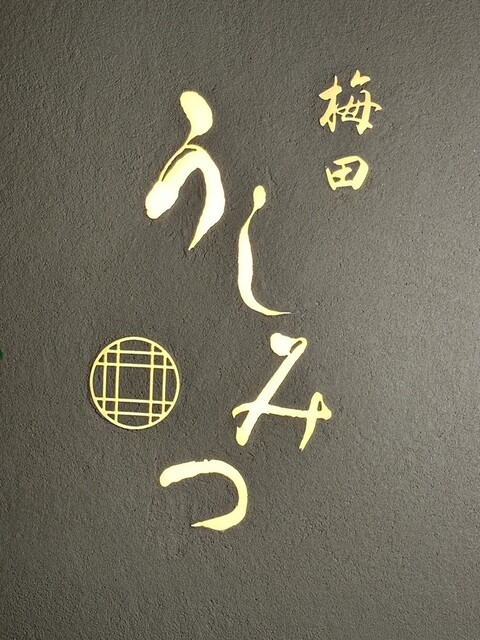 梅田
うしみつ